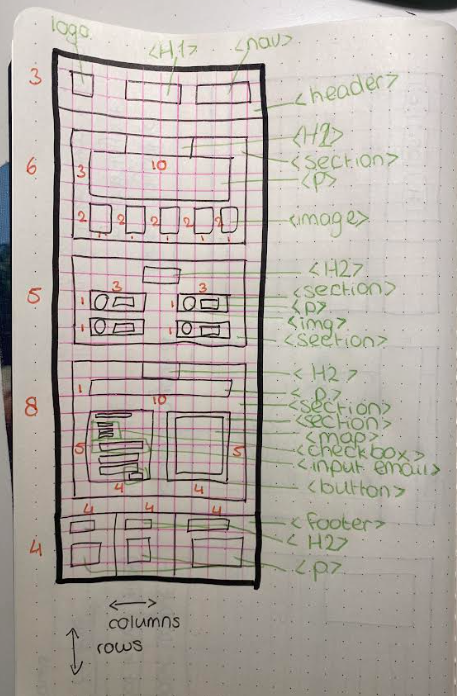 logo <H1> <nav>
3 <header>
<H2>
6 <section>
3 10 <p>
2 2 2 2 2 <image>
1 1 1 1 1
<H2>
3 3 <section>
5 1 1 <p>
<img>
1 1 <section>
<H2>
1 <p>
8 10 <section>
<section>
<map>
5 5 <checkbox>
<input email>
4 4 <button>
4 4 4
<footer>
<H2>
4 <p>
columns
rows